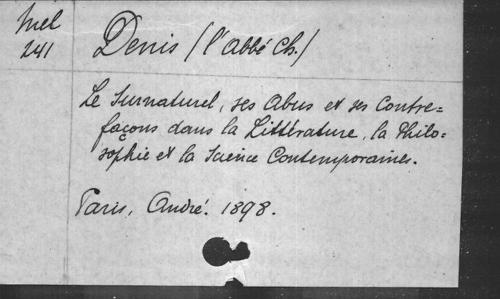 Mel
241
Denis (l'abbé Ch.)
Le Surnaturel, ses Abus et ses Contre-
façons dans la Littérature, la Philo-
sophie et la Science Contemporaines.
Paris, André. 1898.